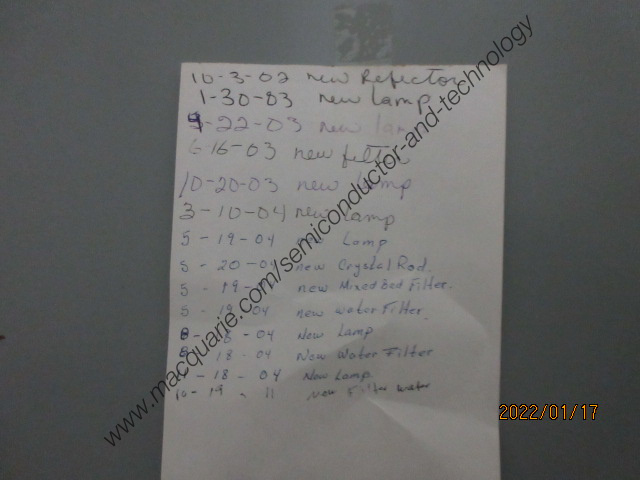 10-3-02 new Refector
1-30-03 new Lamp
-22-03 new lamp
6-16-03 new filter
10-20-03 new Lamp
3-10-04 new Lamp
5-19-04 Lamp
5-20-04 new Crystal Rod.
5-19- new Mixed Bed Filter.
5-19-04 new water Filter.
8-18-04 New Lamp
8-18-04 New Water Filter
-18-04 New Lamp
10-19-11 New Filter water
www.macquarie.com/semiconductor-and-technology
2022/01/17